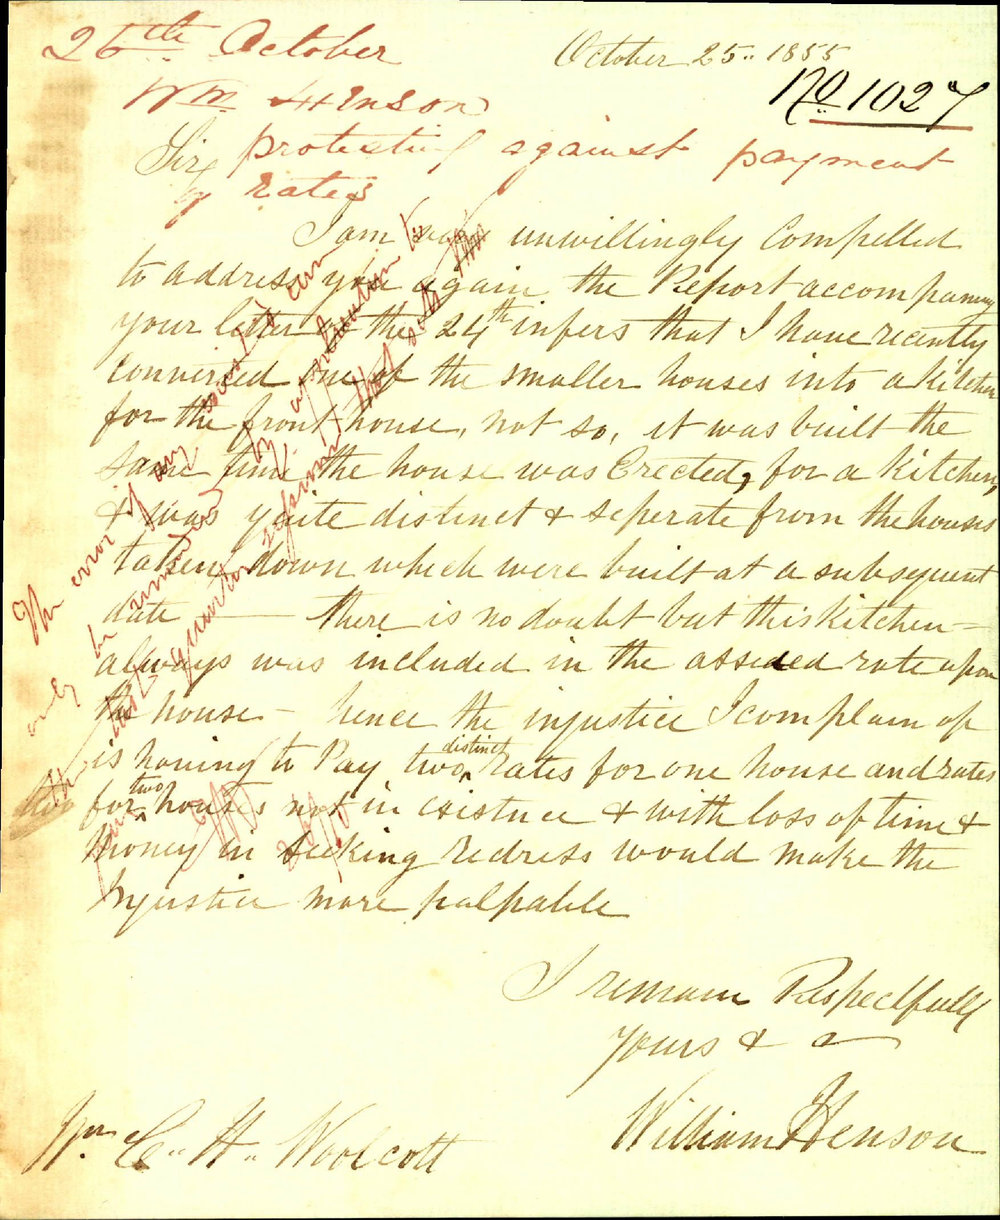 26th October
October 25.. 1855
No 1027
Wm Henson
Sir
protesting against payment
of rates
I am unwillingly Compelled
to address you again the Report accompaning
your letter of the 24th infers that I have recently
Converted one of the smaller houses into a Kitchen
for the front house, not so, it was built the
same time the house was Erected, for a Kitchen,
& was quite distinct & seperate from the houses
taken down which were built at a subsequent
date — there is no doubt but this Kitchen —
always was included in the assessed rate upon
the house — hence the injustice I complain of
is having to Pay two distinct rates for one house and rates
for two houses not in existence & with loss of time &
money in seeking redress would make the
Injustice more palpable
I remain Respectfully
Yours &
William Henson
Mr C.. H.. Woolcott
The error if any can
only be remedied by appealing to
the